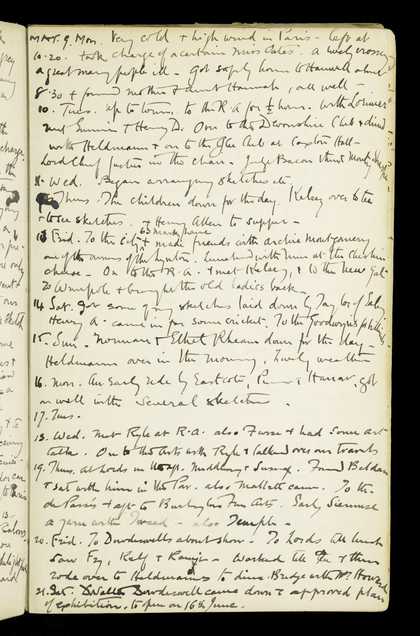 MAY. 9. Mon. Very cold & high wind in Paris - left at
10.20. took charge of a certain Miss Coles. A lively crossing
a great many people ill - Got safely home to Hanwell about
8.30 & found mother & Aunt Hannah, all well -
10. Tues. Up to town, to the R.A for ½ hour. with Lorimer
met Emmie & Henry D. On to the Devonshire Club & dined
with Heldmann & on to the Glee Club at Caxton Hall -
Lord Chief Justice in the chair - Judge Bacon
11. Wed. Began arranging sketches etc.
12. Thurs. The children down for the day. Kelsey over to tea
to see sketches. & Henry Allen to supper -
13 Frid. To the City & made friends with Archie Montgomery
one of the owners of the . Lunched with him at the Cheshire
cheese - On to the R.A. & met Kelsey, & to the New Gal
to Wimpole & bring the old ladies back -
14 Sat. Got some of my sketches laid down by Taylor of
Henry A. came in for some cricket. To the Goodwyns
15. Sun. Norman & Ethel Rheam down for the day -
Heldmann over in the morning, lovely weather
16. Mon. An early ride by Eastcote, Pinner & Harrow. got
on well with several sketches -
17. Tues.
18. Wed. Met Ryle at R.A. also Furse & had some art
talk. On to the Arts with Ryle & talked over our travels
19. Thurs. At Lords in the aft. Middlesex & Sussex. Found Beldam
& sat with him in the Pav. also Mallett came. To the
de Pass's & aft to Burlington Fine Arts. Early Siennese
a yarn with - also Temple -
20. Frid. To Dowdeswells about show - To Lords till lunch
Saw Fry, Ralf & Ranji - Worked till tea & then
rode over to Heldmanns to dine. Bridge with Mr Howard
21. Sat. Dowdeswell came down & approved plan
of exhibition. to open on 16th June.